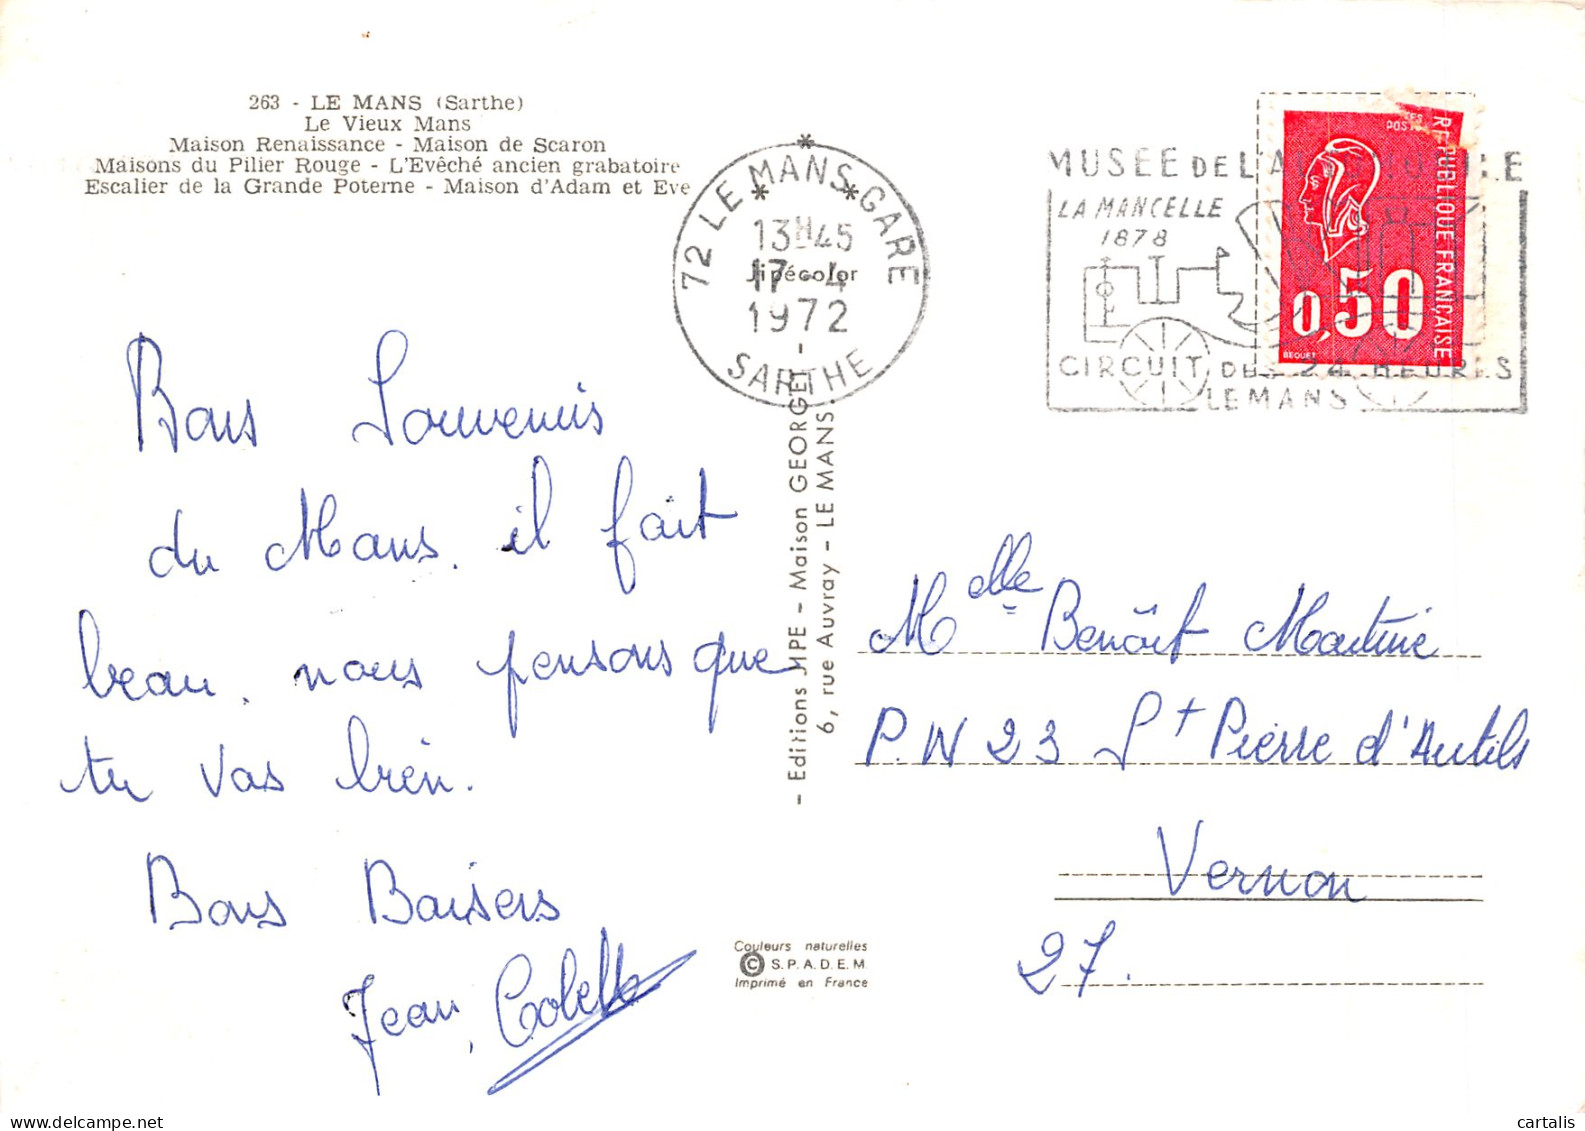 263 - LE MANS (Sarthe)
Le Vieux Mans
Maison Renaissance - Maison de Scaron
Maisons du Pilier Rouge - L'Evêché ancien grabatoire
Escalier de la Grande Poterne - Maison d'Adam et Eve
Jipécolor
72 LE MANS GARE
13H45
17-4
1972
SARTHE
MUSEE DE L'A
LA MANCELLE
1878
CIRCUIT DES 24 HEURES
LE MANS
POSTES
REPUBLIQUE FRANÇAISE
0,50
BEQUET
Bons Souvenirs
du Mans. il fait
beau. nous pensons que
tu vas bien.
Bons Baisers
Jean, Colette
- Editions JIPE - Maison GEORGET -
6, rue Auvray - LE MANS.
Couleurs naturelles
© S.P.A.D.E.M.
Imprimé en France
Melle Benôit Martine
P.N 23 St Pierre d'Autils
Vernon
27.
delcampe.net
cartalis